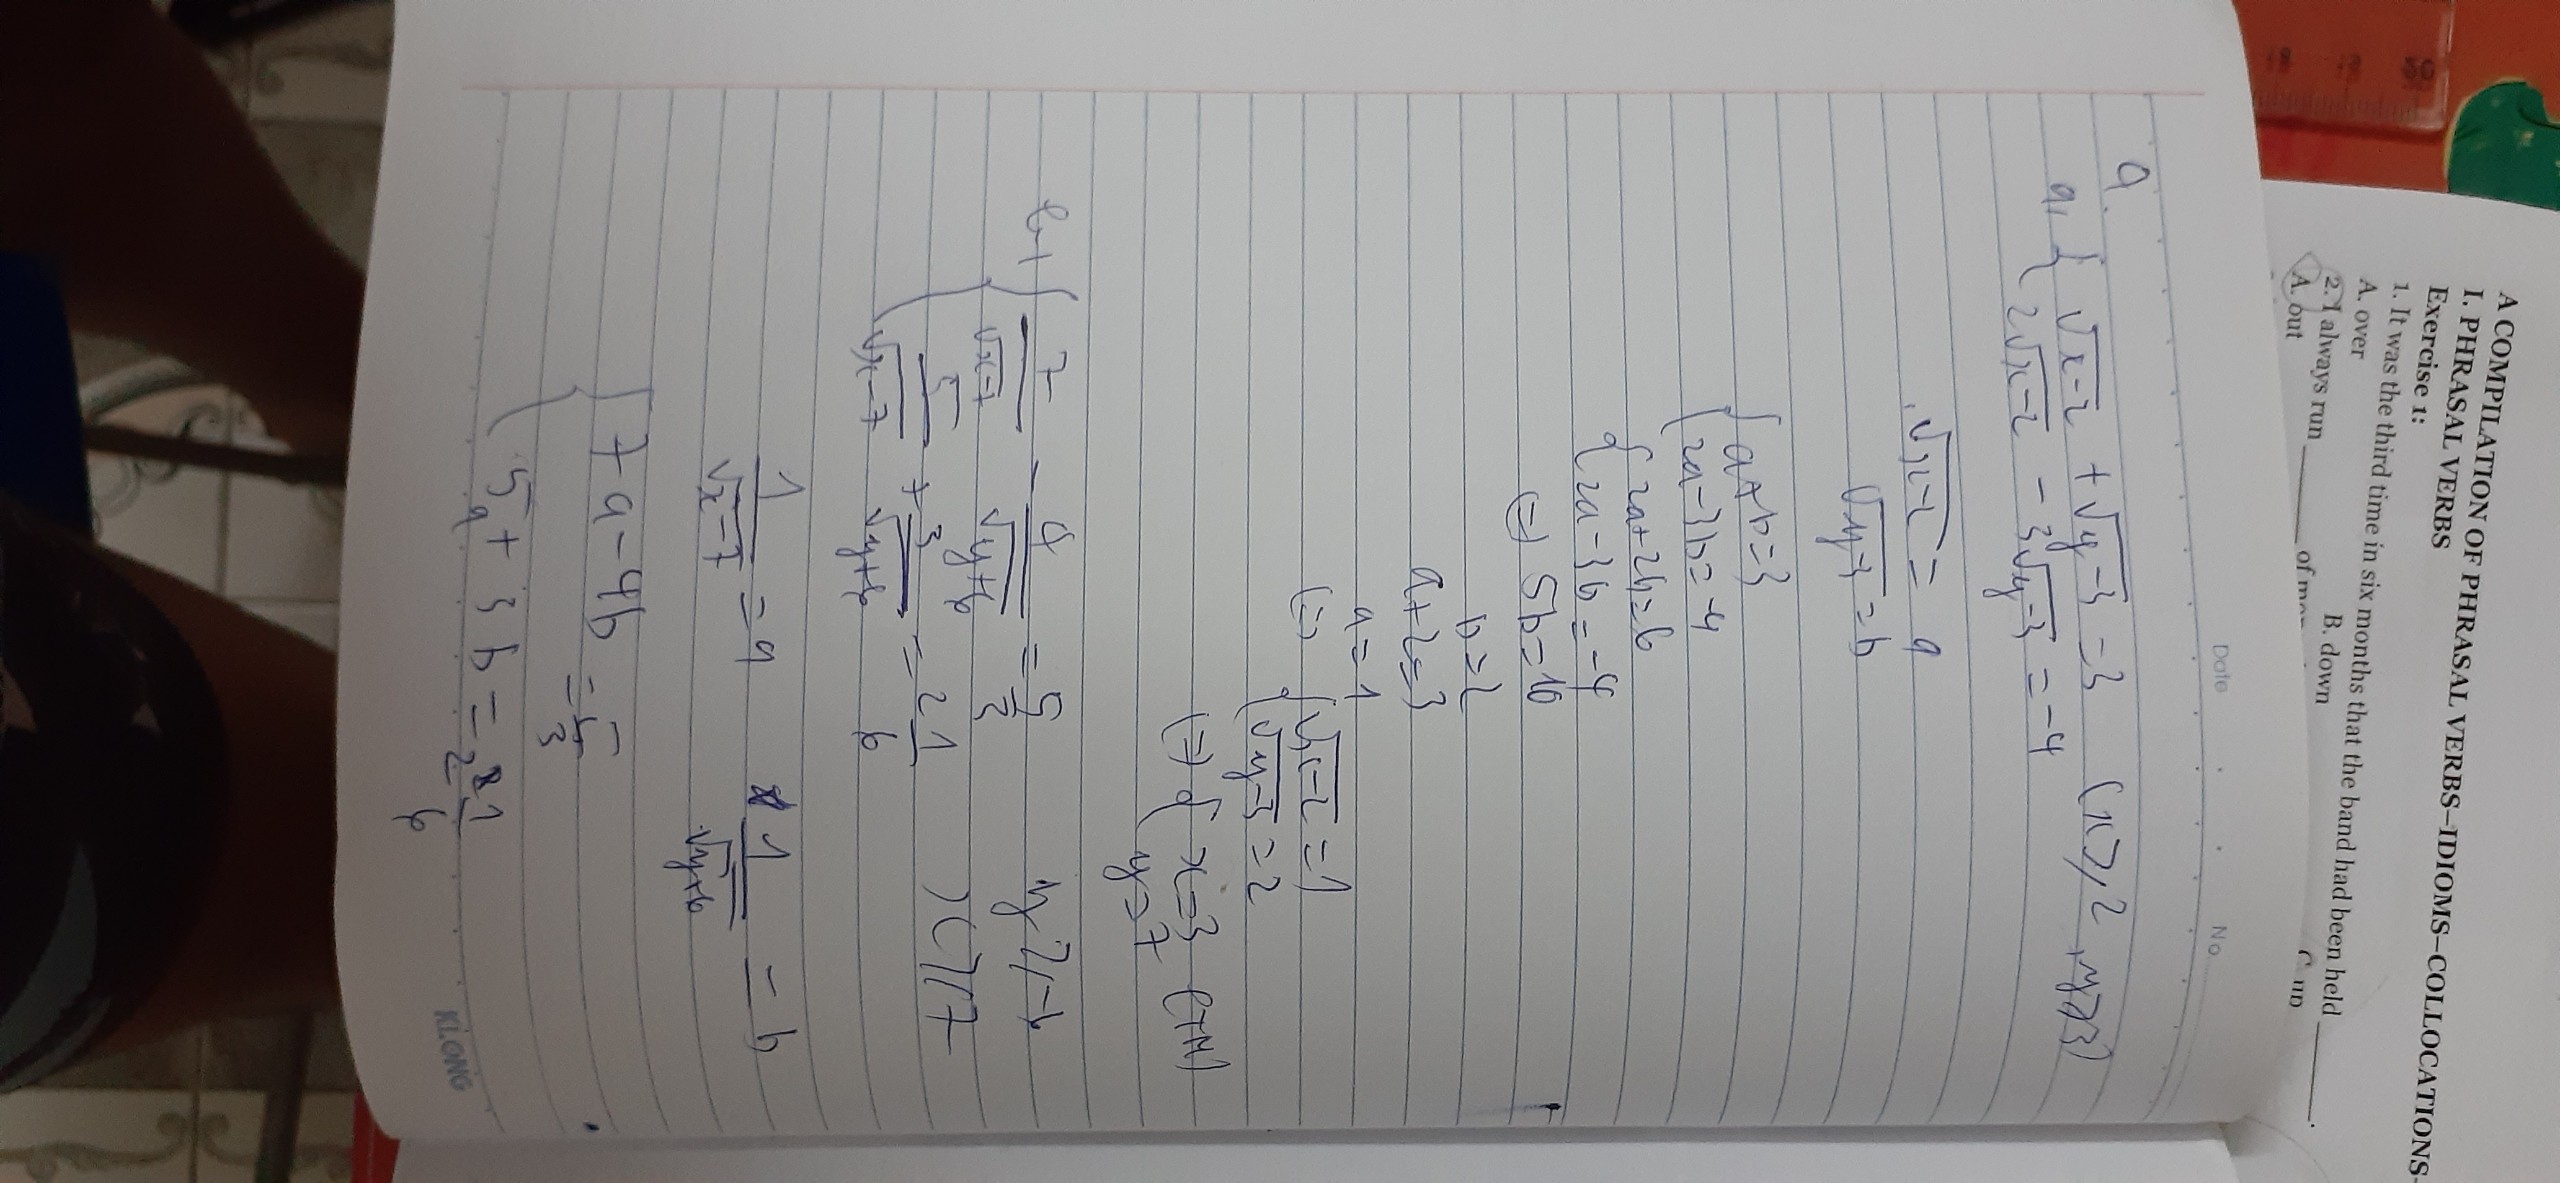 A COMPILATION OF PHRASAL VERBS–IDIOMS–COLLOCATIONS-
I. PHRASAL VERBS
Exercise 1:
1. It was the third time in six months that the band had been held ______.
A. over B. down C. up
2. I always run ______ of
A. out
Date No
9.
a, { √x-2 + √y-3 = 3 (x ≥ 2, y ≥ 3)
2√x-2 - 3√y-3 = -4
√x-2 = a
√y-3 = b
{ a+b=3
2a-3b=-4
{ 2a+2b=6
2a-3b=-4
(=) 5b=10
b=2
a+2=3
a=1
(=) { √x-2 = 1
√y-3 = 2
(=) { x=3 (TM)
y=7
b, { 7/√x-7 - 4/√y+6 = 5/3 y ≥ -6
5/√x-7 + 3/√y+6 = 2 1/6 x ≥ 7
1/√x-7 = a 1/√y+6 = b
{ 7a-4b = 5/3
5a+3b = 2 1/6
KLONG
18 19 20